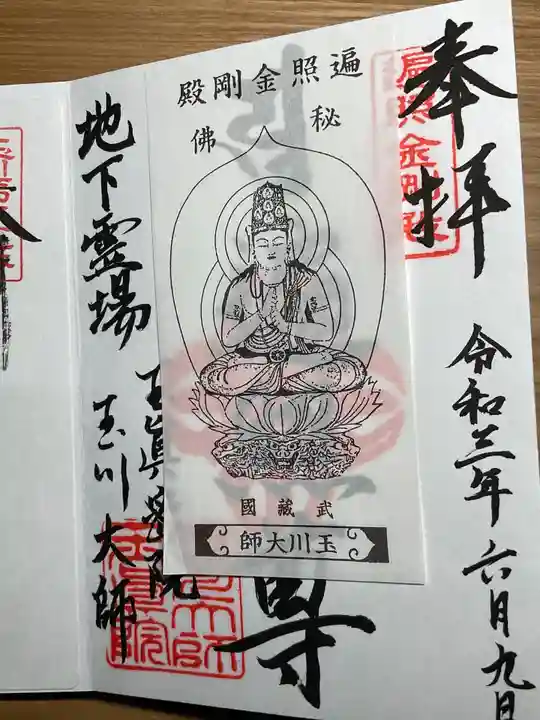 奉拝
令和三年六月九日
遍照金剛殿
秘佛
武藏國
玉川大師
尊
地下霊場
玉眞密院
玉川大師
遍照金剛殿